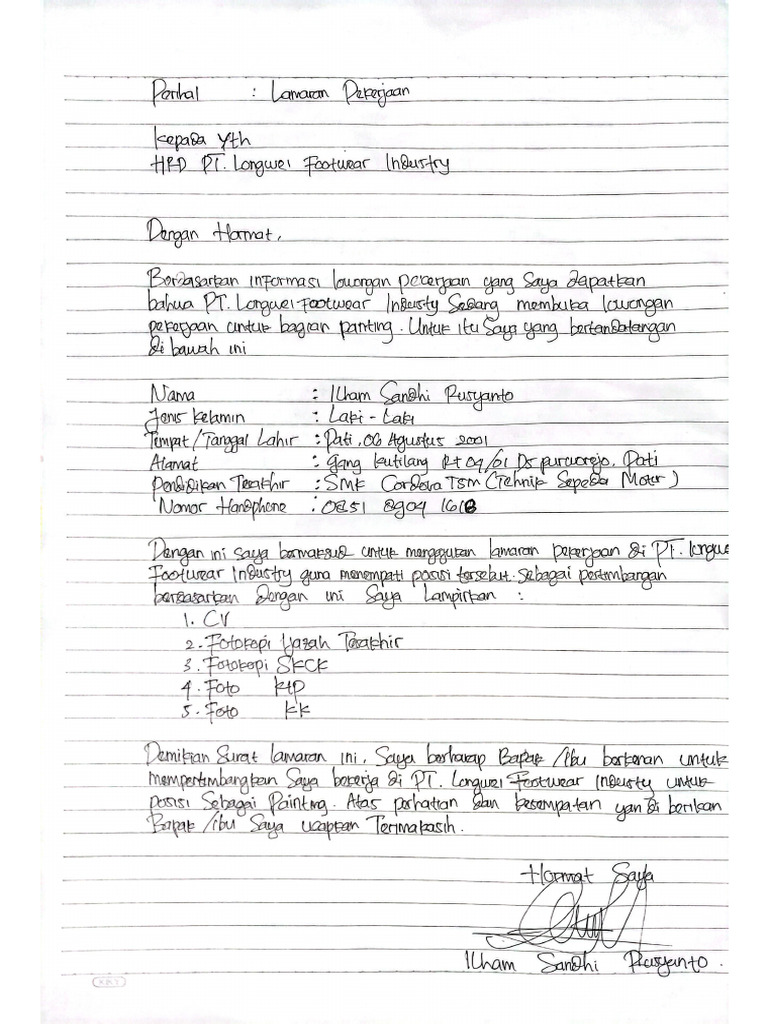 Perihal : Lamaran Pekerjaan
Kepada Yth
HRD PT. Longwei Footwear Industry
Dengan Hormat,
Berdasarkan informasi lowongan pekerjaan yang Saya dapatkan
bahwa PT. Longwei Footwear Industy Sedang membuka lowongan
pekerjaan untuk bagian panting. Untuk itu Saya yang bertandatangan
di bawah ini
Nama : Ilham Sandhi Rusyanto
Jenis Kelamin : Laki - Laki
Tempat/Tanggal Lahir : Pati, 06 Agustus 2001
Alamat : Gang Kutilang Rt 09/01 Ds purworejo, Pati
Pendidikan Terakhir : SMK Cordova TSM (Tehnik Sepeda Motor)
Nomor Handphone : 0851 8909 1618
Dengan ini saya bermaksud untuk menggutan lamaran pekerjaan di PT. Longwe
Footwear Industry guna menempati posisi tersebut. Sebagai pertimbangan
berdasarkan Dengan ini Saya Lampirkan :
1. CV
2. Fotokopi Ijazah Terakhir
3. Fotokopi SKCK
4. Foto ktp
5. Foto kk
Demikian Surat lamaran ini, Saya berharap Bapak /ibu berkenan untuk
mempertimbangkan Saya bekerja di PT. Longwei Footwear Industy untuk
posisi Sebagai Painting. Atas perhatian dan kesempatan yan di berikan
Bapak /ibu Saya ucapkan Terimakasih.
Hormat Saya
Ilham Sandhi Rusyanto.